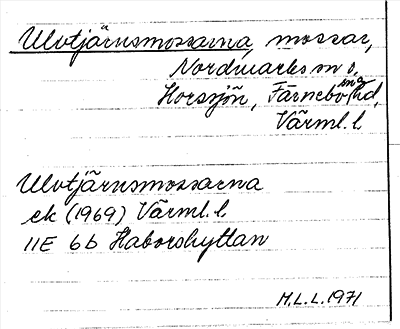 Ulvtjärnsmossarna, mossar,
Nordmarks sn,
Horssjön, Färnebo hd,
Värml. l
Ulvtjärnsmossarna
ek (1969) Värml. l
11E 6b Haborshyttan
M.L.L. 1971